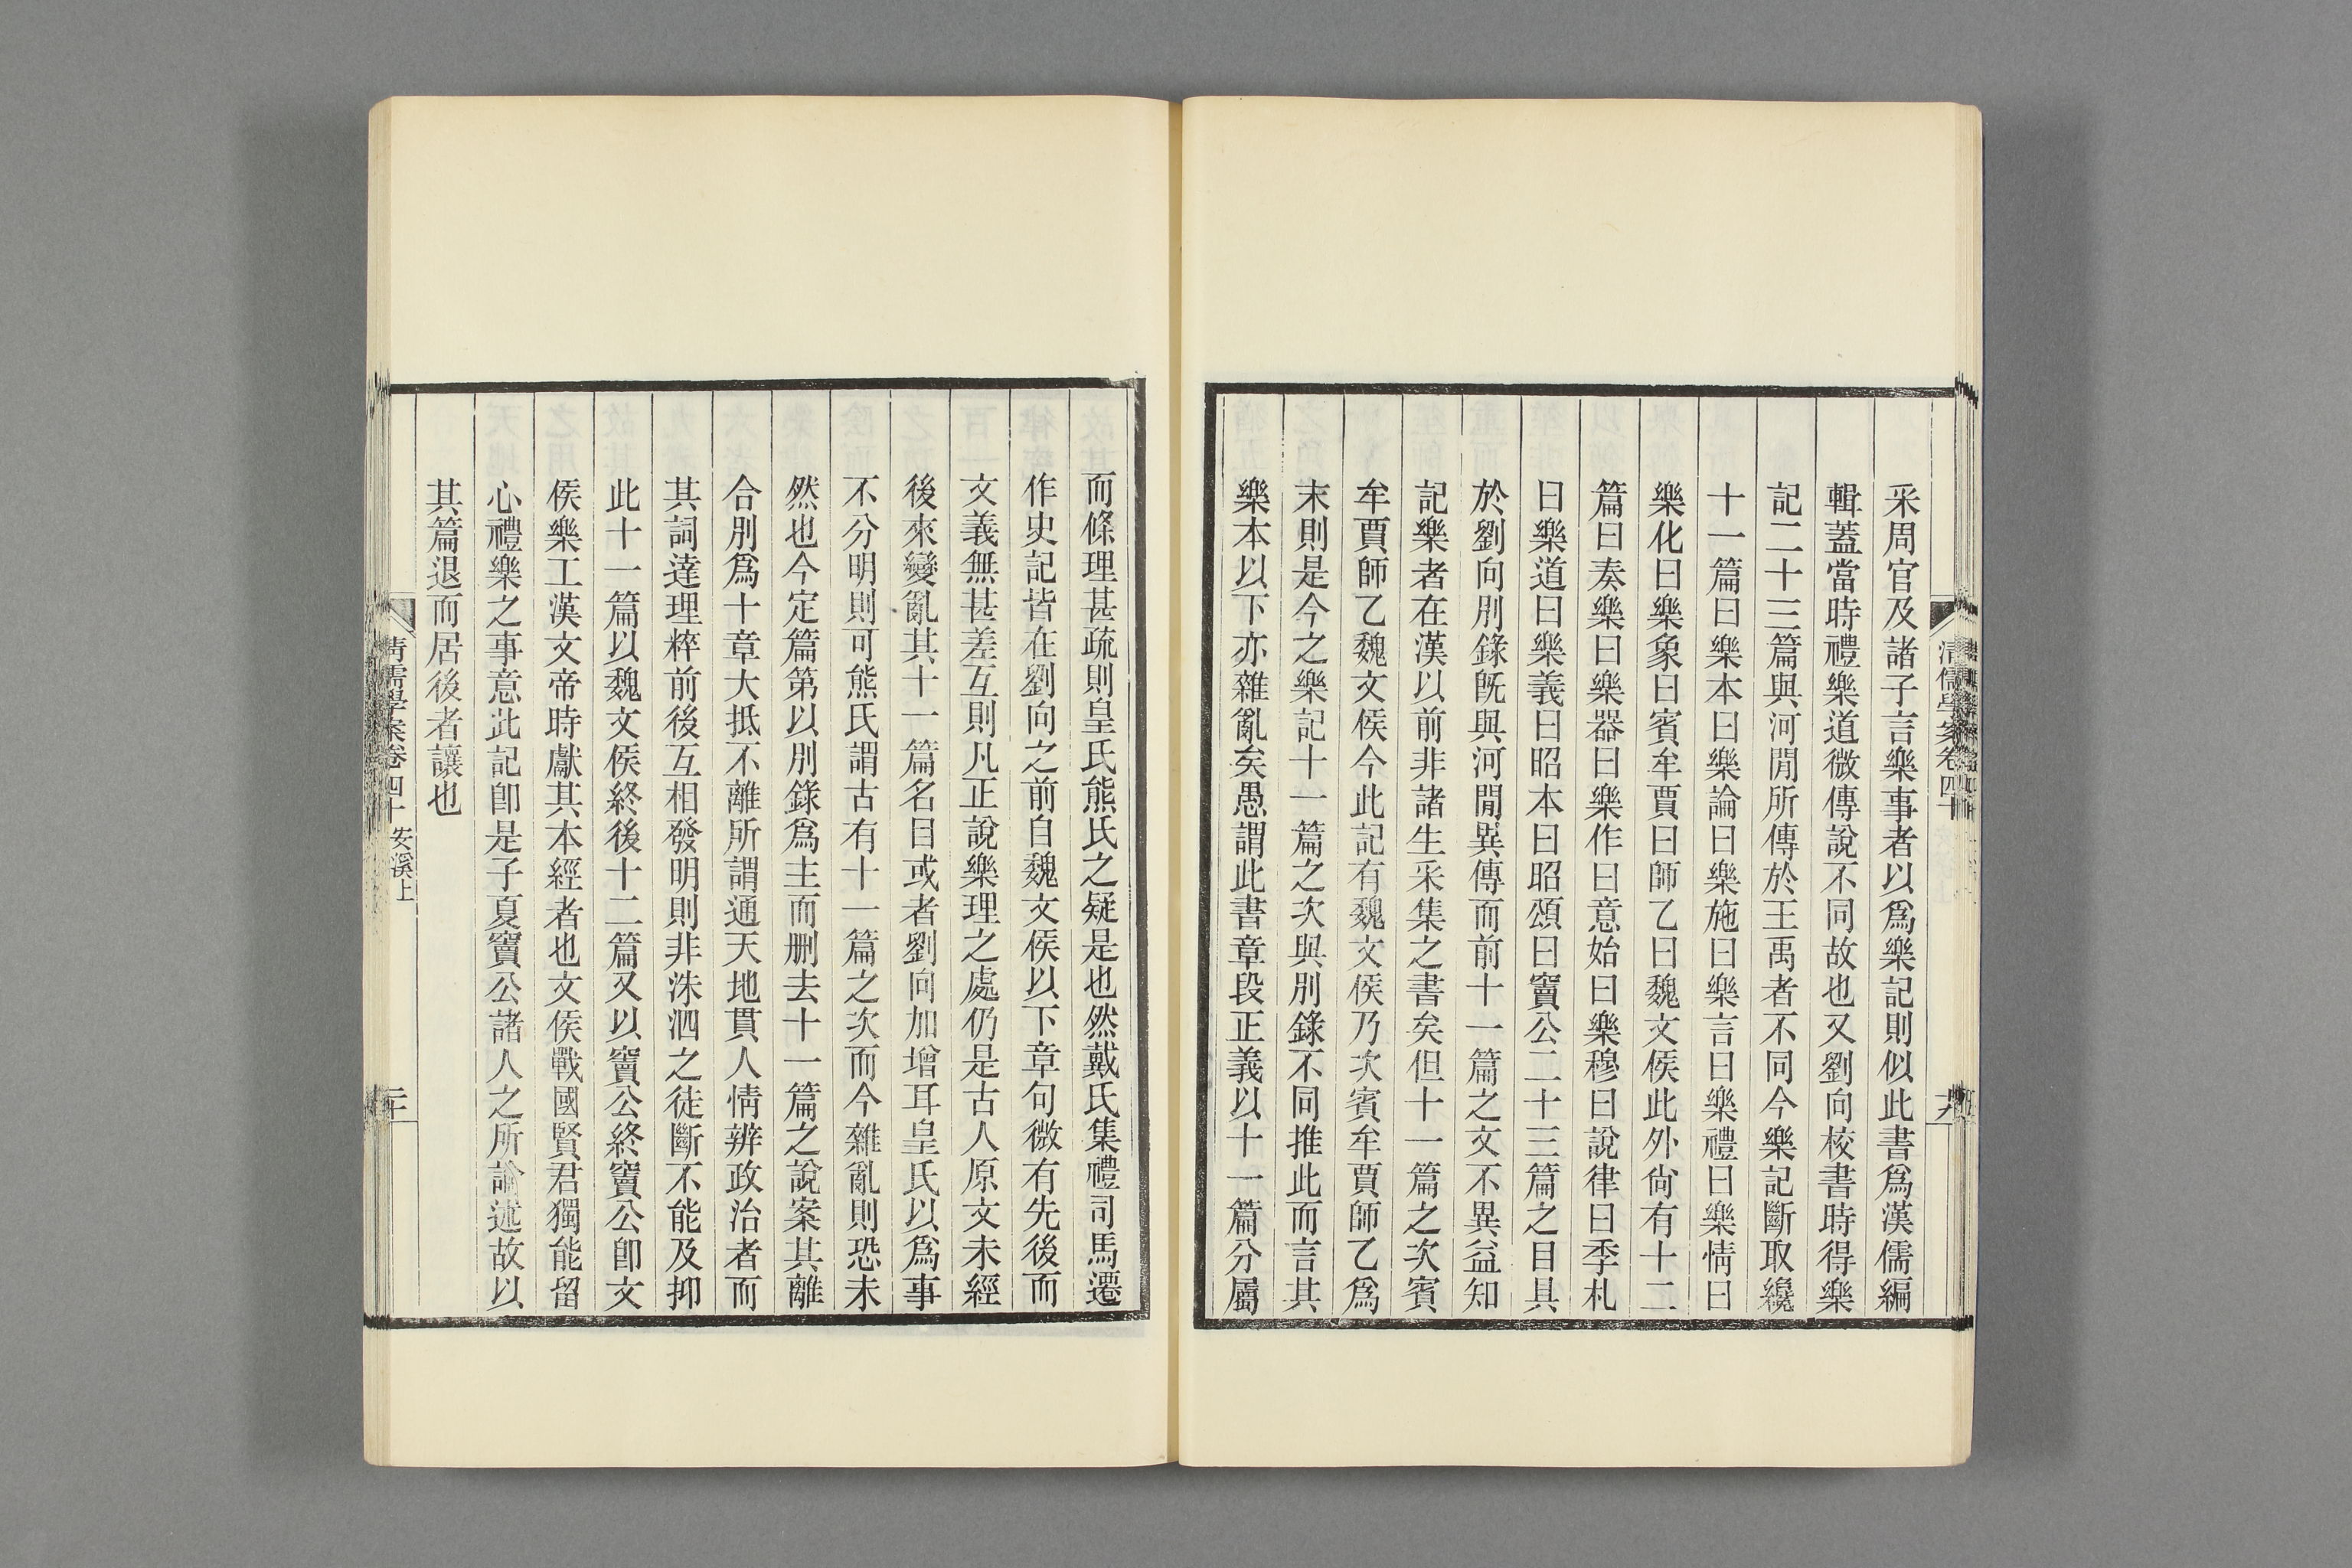 采周官及諸子言樂事者以爲樂記則似此書爲漢儒編
輯蓋當時禮樂道微傳說不同故也又劉向校書時得樂
記二十三篇與河閒所傳於王禹者不同今樂記斷取纔
十一篇曰樂本曰樂論曰樂施曰樂言曰樂禮曰樂情曰
樂化曰樂象曰賓牟賈曰師乙曰魏文侯此外尙有十二
篇曰奏樂曰樂器曰樂作曰意始曰樂穆曰說律曰季札
曰樂道曰樂義曰昭本曰昭頌曰竇公二十三篇之目具
於劉向別錄旣與河閒異傳而前十一篇之文不異益知
記樂者在漢以前非諸生采集之書矣但十一篇之次賓
牟賈師乙魏文侯今此記有魏文侯乃次賓牟賈師乙爲
末則是今之樂記十一篇之次與別錄不同推此而言其
樂本以下亦雜亂矣愚謂此書章段正義以十一篇分屬
清儒學案卷四十
而條理甚疏則皇氏熊氏之疑是也然戴氏集禮司馬遷
作史記皆在劉向之前自魏文侯以下章句微有先後而
文義無甚差互則凡正說樂理之處仍是古人原文未經
後來變亂其十一篇名目或者劉向加增耳皇氏以爲事
不分明則可熊氏謂古有十一篇之次而今雜亂則恐未
然也今定篇第以別錄爲主而刪去十一篇之說案其離
合別爲十章大抵不離所謂通天地貫人情辨政治者而
其詞達理粹前後互相發明則非洙泗之徒斷不能及抑
此十一篇以魏文侯終後十二篇又以竇公終竇公卽文
侯樂工漢文帝時獻其本經者也文侯戰國賢君獨能留
心禮樂之事意此記卽是子夏竇公諸人之所論述故以
其篇退而居後者讓也
清儒學案卷四十 安溪上